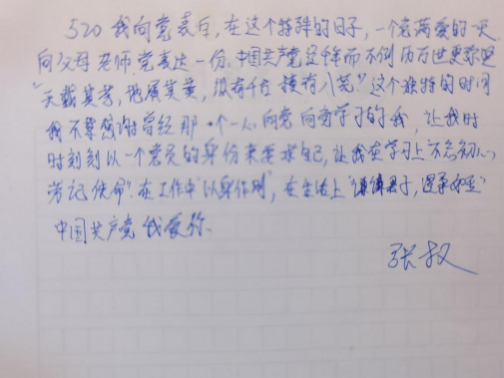 520我向党表白,在这个特殊的日子,一个充满爱的一天
向父母 老师.党表达一份.中国共产党历千年而不倒 历万世更弥坚
"天戴其苍,地履其黄,纵有千古 横有八荒."这个独特的时间
我不禁感谢曾经那个一心向党 向党学习的我,让我时
时刻刻以一个党员的身份来要求自己,让我在学习上"不忘初心,
牢记使命".在工作中"以身作则",在生活上"谦谦君子,温柔如玉"
中国共产党 我爱你.
张权